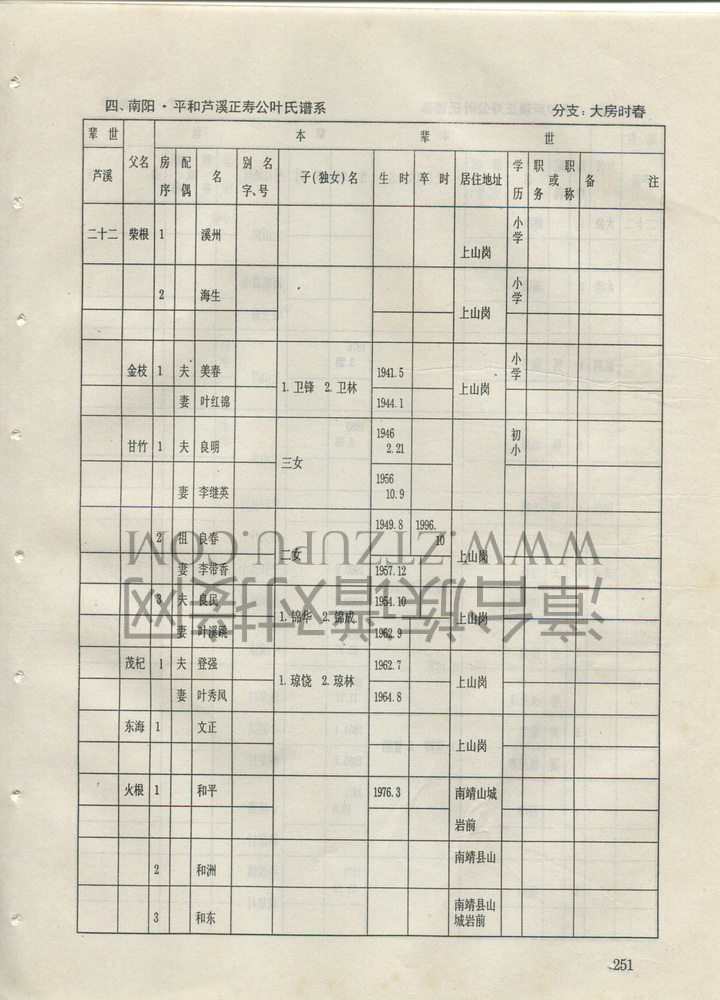 四、南阳·平和芦溪正寿公叶氏谱系 分支：大房时春
辈世 本 辈 世
芦溪 父名 房序 配偶 名 别名字、号 子(独女)名 生时 卒时 居住地址 学历 职务或职称 备注
二十二 柴根 1 溪州 上山岗 小学
2 海生 上山岗 小学
金枝 1 夫 美春 1.卫锋 2.卫林 1941.5 上山岗 小学
妻 叶红锦 1944.1
甘竹 1 夫 良明 三女 1946 2.21 初小
妻 李继英 1956 10.9
2 祖 良春 二女 1949.8 1996.10 上山岗
妻 李带香 1957.12
3 夫 良民 1.锦华 2.锦成 1954.10 上山岗
妻 叶溪 1962.9
茂杞 1 夫 登强 1.琼饶 2.琼林 1962.7 上山岗
妻 叶秀凤 1964.8
东海 1 文正 上山岗
火根 1 和平 1976.3 南靖山城岩前
2 和洲 南靖县山
3 和东 南靖县山城岩前
251
漳台族谱对接网
WWW.ZTZUPU.COM